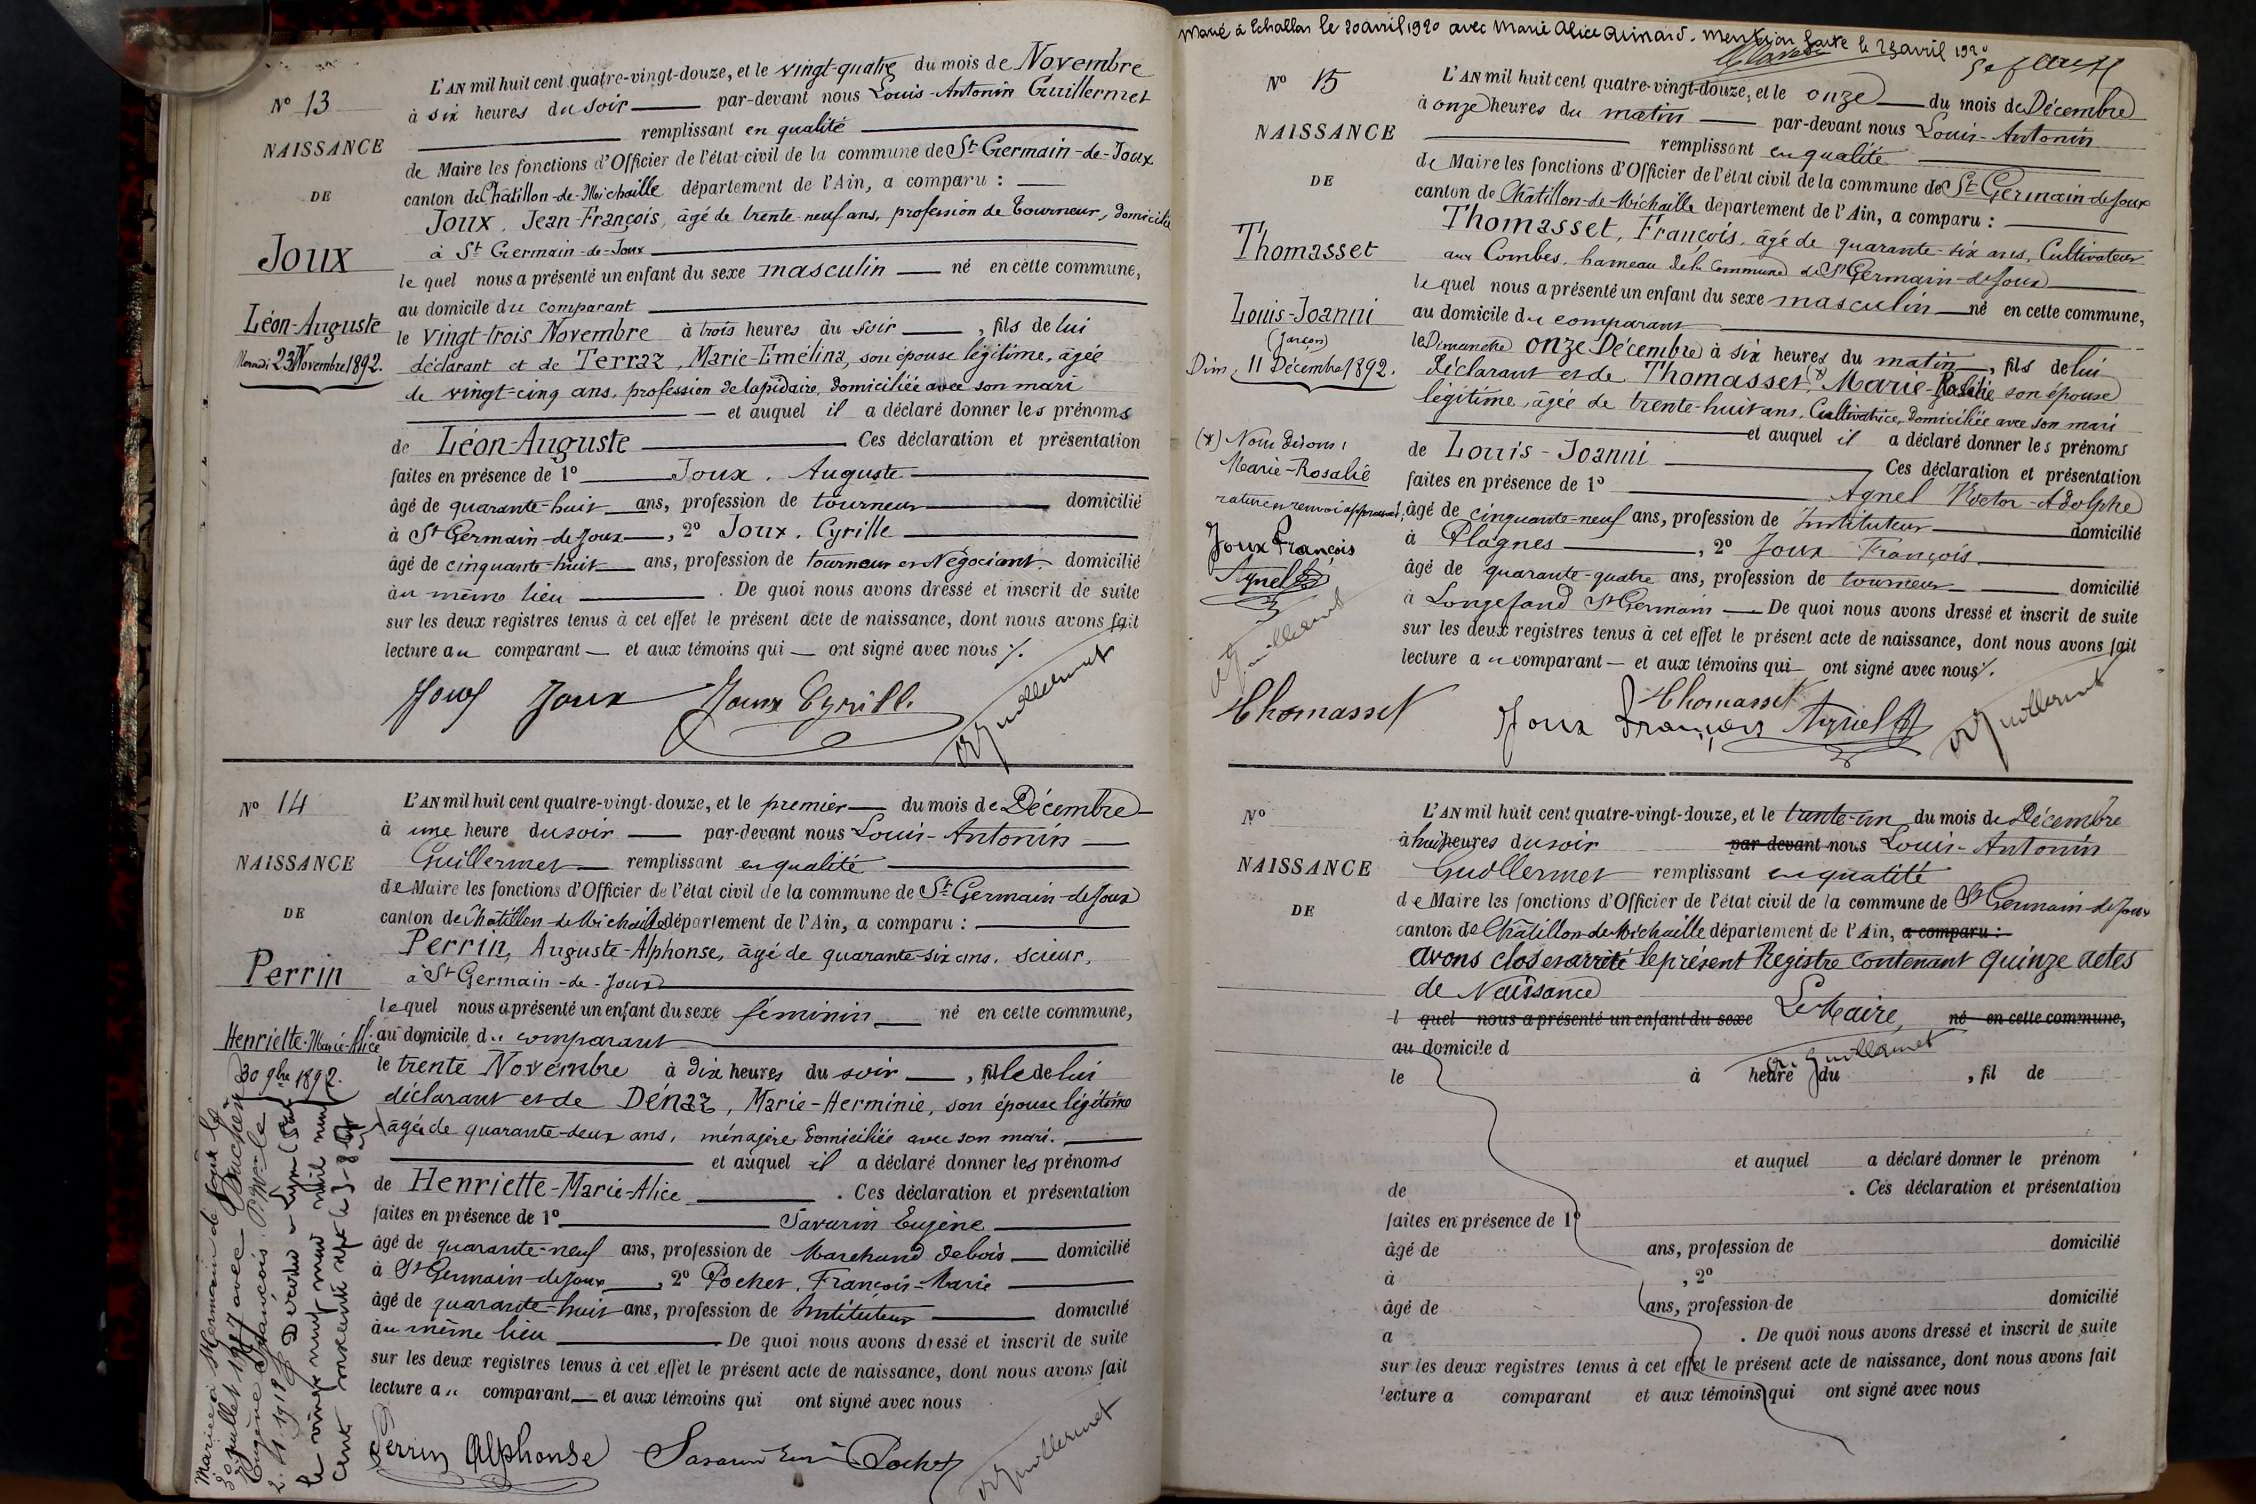 Nº 13
NAISSANCE
DE
Joux
Léon-Auguste
Mercredi 23 Novembre 1892.
L'AN mil huit cent quatre-vingt-douze, et le vingt-quatre du mois de Novembre
à six heures du soir par-devant nous Louis-Antonin Guillermet
remplissant en qualité
de Maire les fonctions d'Officier de l'état civil de la commune de St Germain-de-Joux
canton de Châtillon-de-Michaille département de l'Ain, a comparu :
Joux, Jean-François, âgé de trente-neuf ans, profession de tourneur, domicilié
à St Germain-de-Joux
le quel nous a présenté un enfant du sexe masculin né en cette commune,
au domicile du comparant
le vingt-trois Novembre à trois heures du soir, fils de lui
déclarant et de Terraz, Marie-Emélina, son épouse légitime, âgée
de vingt-cinq ans, profession de lapidaire, domiciliée avec son mari
et auquel il a déclaré donner les prénoms
de Léon-Auguste Ces déclaration et présentation
faites en présence de 1º Joux, Auguste
âgé de quarante-huit ans, profession de tourneur domicilié
à St Germain-de-Joux, 2º Joux, Cyrille
âgé de cinquante-huit ans, profession de tourneur et Négociant domicilié
au même lieu. De quoi nous avons dressé et inscrit de suite
sur les deux registres tenus à cet effet le présent acte de naissance, dont nous avons fait
lecture au comparant et aux témoins qui ont signé avec nous /.
Joux Joux Joux Cyrille
Guillermet
Nº 14
NAISSANCE
DE
Perrin
Henriette-Marie-Alice
30 9bre 1892.
L'AN mil huit cent quatre-vingt-douze, et le premier du mois de Décembre
à une heure du soir par-devant nous Louis-Antonin
Guillermet remplissant en qualité
de Maire les fonctions d'Officier de l'état civil de la commune de St Germain-de-Joux
canton de Châtillon-de-Michaille département de l'Ain, a comparu :
Perrin, Auguste-Alphonse, âgé de quarante-six ans, scieur,
à St Germain-de-Joux
le quel nous a présenté un enfant du sexe féminin né en cette commune,
au domicile du comparant
le trente Novembre à dix heures du soir, fille de lui
déclarant et de Dénaz, Marie-Herminie, son épouse légitime
âgée de quarante-deux ans, ménagère domiciliée avec son mari.
et auquel il a déclaré donner les prénoms
de Henriette-Marie-Alice. Ces déclaration et présentation
faites en présence de 1º Savarin Eugène
âgé de quarante-neuf ans, profession de Marchand de bois domicilié
à St Germain-de-Joux, 2º Pochet, François-Marie
âgé de quarante-huit ans, profession de Instituteur domicilié
au même lieu De quoi nous avons dressé et inscrit de suite
sur les deux registres tenus à cet effet le présent acte de naissance, dont nous avons fait
lecture au comparant et aux témoins qui ont signé avec nous
Perrin Alphonse Savarin Pochet
Guillermet
Mariée à St Germain de Joux le
30 juillet 1917 avec
Eugène François
Marié à Echallon le 20 avril 1920 avec Marie Alice Quinard. Mention faite le 23 avril 1920
Nº 15
NAISSANCE
DE
Thomasset
Louis-Joanni
(Garçon)
Dim. 11 Décembre 1892.
(x) Nous disons :
Marie-Rosalie
rature et renvoi approuvés
Joux François
Agnel
Guillermet
Thomasset
L'AN mil huit cent quatre-vingt-douze, et le onze du mois de Décembre
à onze heures du matin par-devant nous Louis-Antonin
remplissant en qualité
de Maire les fonctions d'Officier de l'état civil de la commune de St Germain-de-Joux
canton de Châtillon-de-Michaille département de l'Ain, a comparu :
Thomasset, François, âgé de quarante-six ans, Cultivateur
aux Combes, hameau de la Commune de St Germain-de-Joux
le quel nous a présenté un enfant du sexe masculin né en cette commune,
au domicile du comparant
le Dimanche onze Décembre à six heures du matin, fils de lui
déclarant et de Thomasset, (x) Marie-Rosalie son épouse
légitime, âgée de trente-huit ans, Cultivatrice, domiciliée avec son mari
et auquel il a déclaré donner les prénoms
de Louis-Joanni Ces déclaration et présentation
faites en présence de 1º Agnel Victor-Adolphe
âgé de cinquante-neuf ans, profession de Instituteur domicilié
à Plagnes, 2º Joux François
âgé de quarante-quatre ans, profession de tourneur domicilié
à Longefand St Germain De quoi nous avons dressé et inscrit de suite
sur les deux registres tenus à cet effet le présent acte de naissance, dont nous avons fait
lecture au comparant et aux témoins qui ont signé avec nous /.
Thomasset
Joux François Agnel
Guillermet
Nº
NAISSANCE
DE
L'AN mil huit cent quatre-vingt-douze, et le trente-un du mois de Décembre
à huit heures du soir par-devant nous Louis-Antonin
Guillermet remplissant en qualité
de Maire les fonctions d'Officier de l'état civil de la commune de St Germain-de-Joux
canton de Châtillon-de-Michaille département de l'Ain, a comparu :
avons clos et arrêté le présent Registre contenant quinze actes
de Naissance
l quel nous a présenté un enfant du sexe Le Maire, né en cette commune,
au domicile d Guillermet
le à heure du , fil de
et auquel a déclaré donner le prénom
de . Ces déclaration et présentation
faites en présence de 1º
âgé de ans, profession de domicilié
à , 2º
âgé de ans, profession de domicilié
a . De quoi nous avons dressé et inscrit de suite
sur les deux registres tenus à cet effet le présent acte de naissance, dont nous avons fait
lecture a comparant et aux témoins qui ont signé avec nous